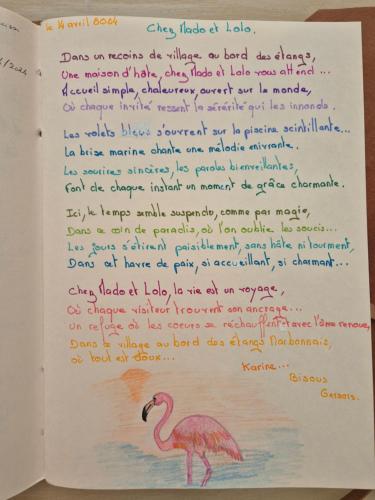 le 14 avril 2024
Chez Mado et Lolo.
Dans un recoins de village au bord des étangs,
Une maison d'hôte, chez Mado et Lolo vous attend...
Accueil simple, chaleureux, ouvert sur le monde,
Où chaque invité ressent la sérénité qui les innonde.
Les volets bleus s'ouvrent sur la piscine scintillante...
La brise marine chante une mélodie enivrante.
Les sourires sincères, les paroles bienveillantes,
Font de chaque instant un moment de grâce charmante.
Ici, le temps semble suspendu, comme par magie,
Dans ce coin de paradis, où l'on oublie les soucis...
Les jours s'étirent paisiblement, sans hâte ni tourment,
Dans cet havre de paix, si accueillant, si charmant...
Chez Mado et Lolo, la vie est un voyage,
Où chaque visiteur trouvent son ancrage...
Un refuge où les coeurs se réchauffent et avec l'âme renoue,
Dans ce village au bord des étangs Narbonnais,
où tout est doux...
Karine...
Bisous